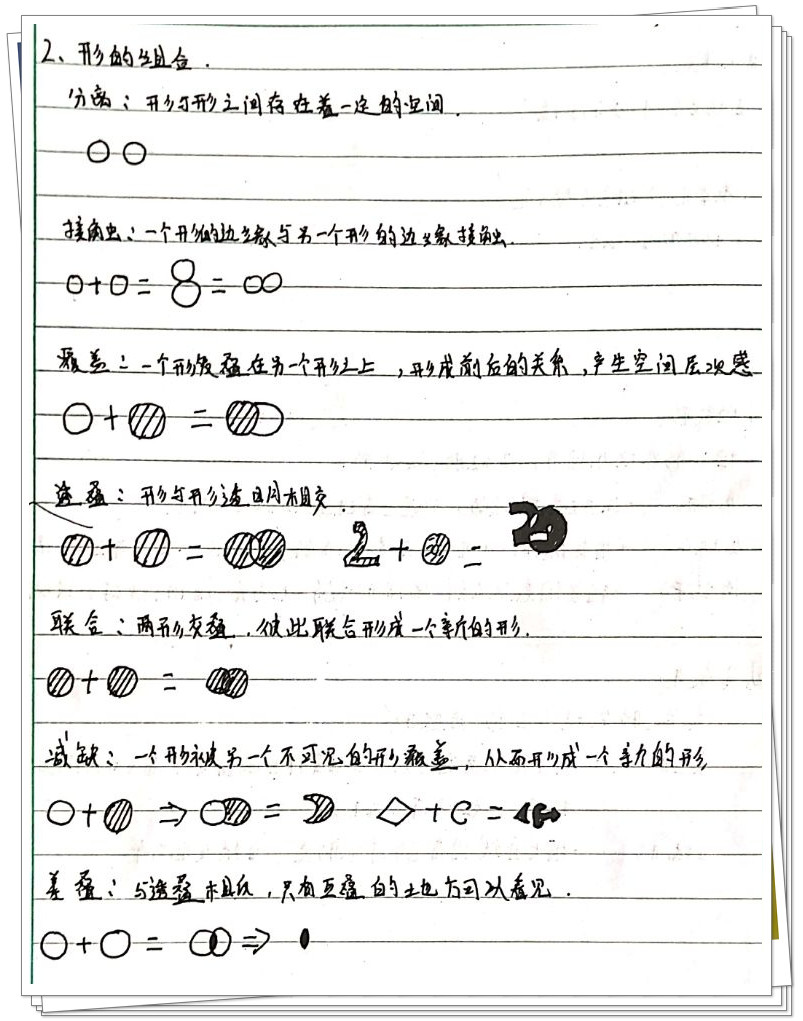 2、形的组合.
分离：形与形之间存在着一定的空间.
接触：一个形的边缘与另一个形的边缘接触.
○+○=8=○○
覆盖：一个形覆叠在另一个形之上，形成前后的关系，产生空间层次感
○+○=
透叠：形与形透明相交.
○+○= 2+○=
联合：两形交叠，彼此联合形成一个新的形.
○+○=
减缺：一个形被另一个不可见的形覆盖，从而形成一个新的形
○+○⇒○○= ◇+C=
差叠：与透叠相似，只有互叠的地方可以看见.
○+○=○○⇒